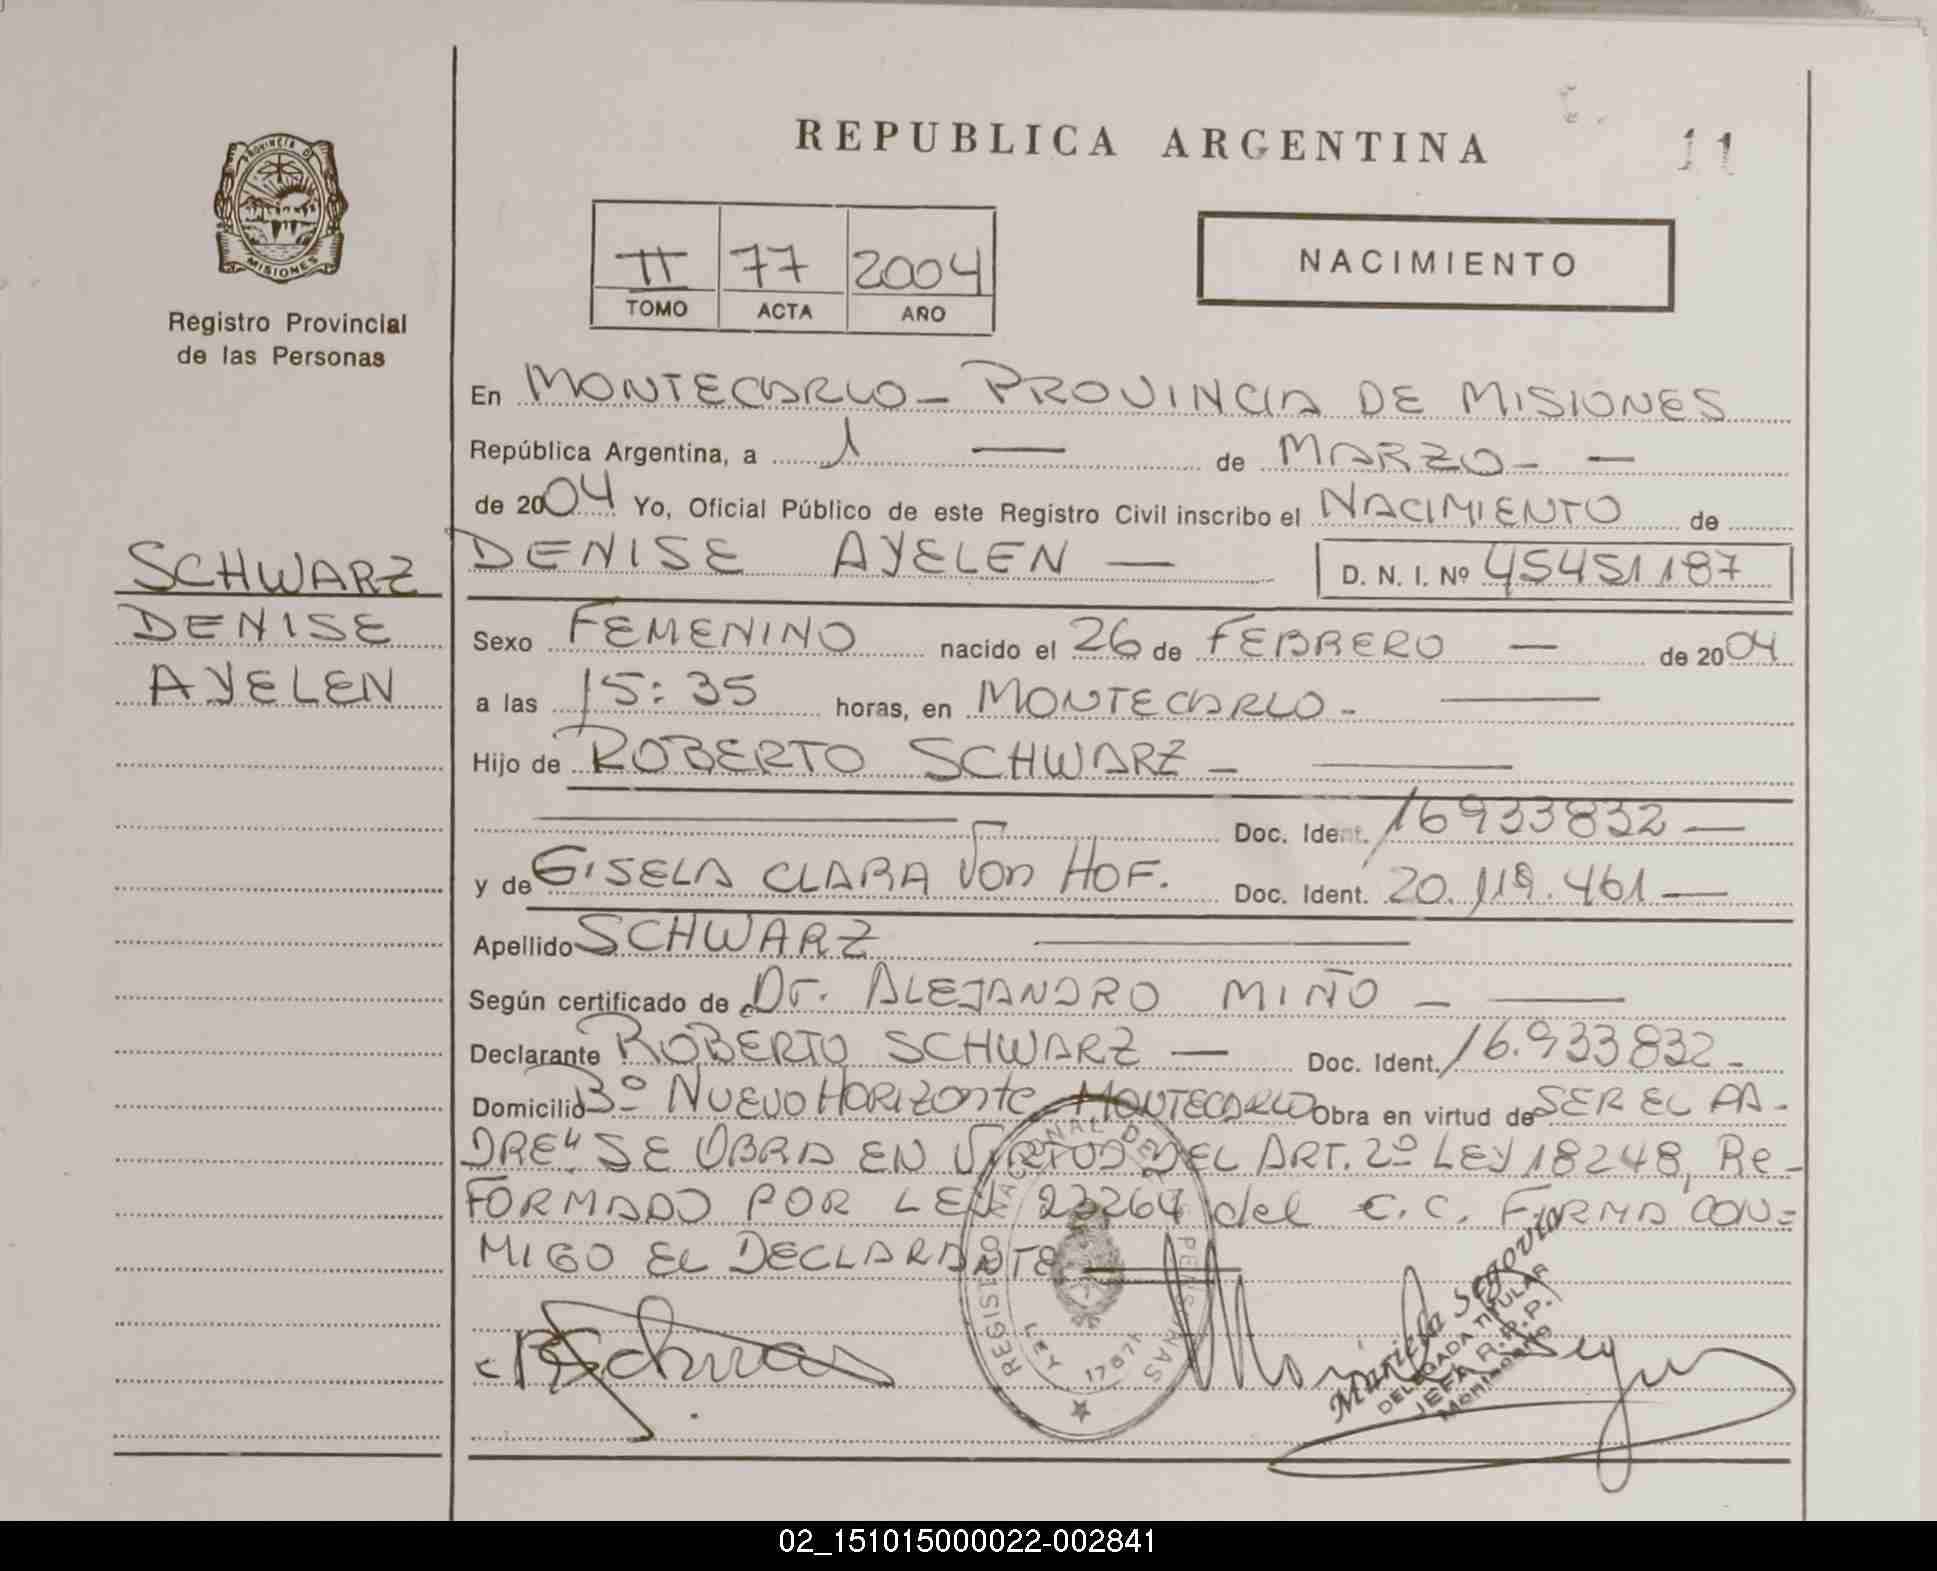 REPUBLICA ARGENTINA
11
PROVINCIA DE
MISIONES
Registro Provincial
de las Personas
II 77 2004
TOMO ACTA AÑO
NACIMIENTO
En MONTECARLO - PROVINCIA DE MISIONES
República Argentina, a 1 — de MARZO - —
de 2004 Yo, Oficial Público de este Registro Civil inscribo el NACIMIENTO de
SCHWARZ
DENISE
AYELEN
DENISE AYELEN — D. N. I. Nº 45451187
Sexo FEMENINO nacido el 26 de FEBRERO — de 2004
a las 15:35 horas, en MONTECARLO - —
Hijo de ROBERTO SCHWARZ - —
— Doc. Ident. 16933832 —
y de GISELA CLARA Von HOF. Doc. Ident. 20.119.461 —
Apellido SCHWARZ —
Según certificado de Dr. ALEJANDRO MIÑO - —
Declarante ROBERTO SCHWARZ — Doc. Ident. 16.933832 -
Domicilio Bº NUEVO HORIZONTE MONTECARLO Obra en virtud de SER EL PA-
DRE" SE OBRA EN VIRTUD DEL ART. 2º LEY 18248, Re-
FORMADO POR LEY 23264 del C.C. FIRMA CON=
MIGO EL DECLARANTE —
REGISTRO NACIONAL DE LAS PERSONAS
LEY 17671
Mariela Segovia
DELEGADA TITULAR
JEFA R.P.P.
Montecarlo
02_151015000022-002841